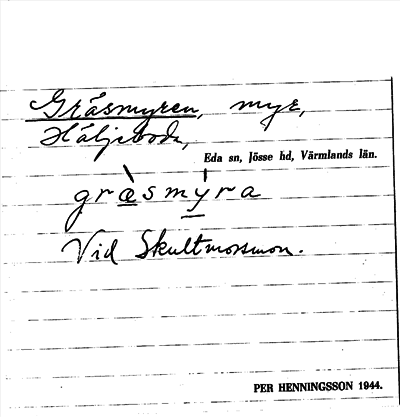 Gräsmyren, myr,
Häljeboda,
Eda sn, Jösse hd, Värmlands län.
græ̀smýra
Vid Skultmossmon.
PER HENNINGSSON 1944.